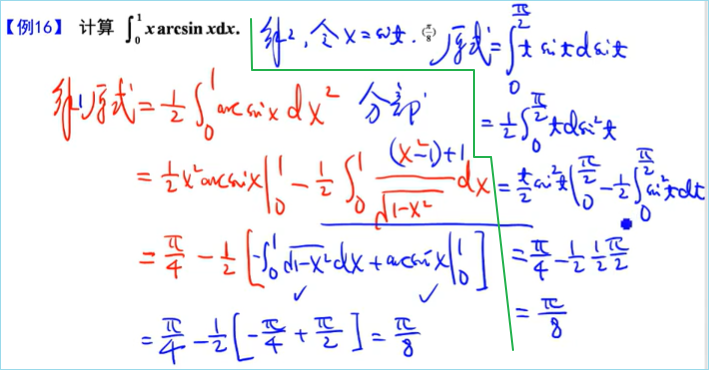 【例16】 计算 ∫₀¹ x arcsin xdx. (π/8)
解1 原式 = 1/2 ∫₀¹ arcsin x dx² 分部
= 1/2 x² arcsin x |₀¹ - 1/2 ∫₀¹ ((x²-1)+1)/√(1-x²) dx
= π/4 - 1/2 [-∫₀¹ √(1-x²) dx + arcsin x |₀¹]
= π/4 - 1/2 [-π/4 + π/2] = π/8
解2, 令 x = sin t. 原式 = ∫₀^(π/2) t sin t d sin t
= 1/2 ∫₀^(π/2) t d sin² t
= t/2 sin² t |₀^(π/2) - 1/2 ∫₀^(π/2) sin² t dt
= π/4 - 1/2 1/2 π/2
= π/8